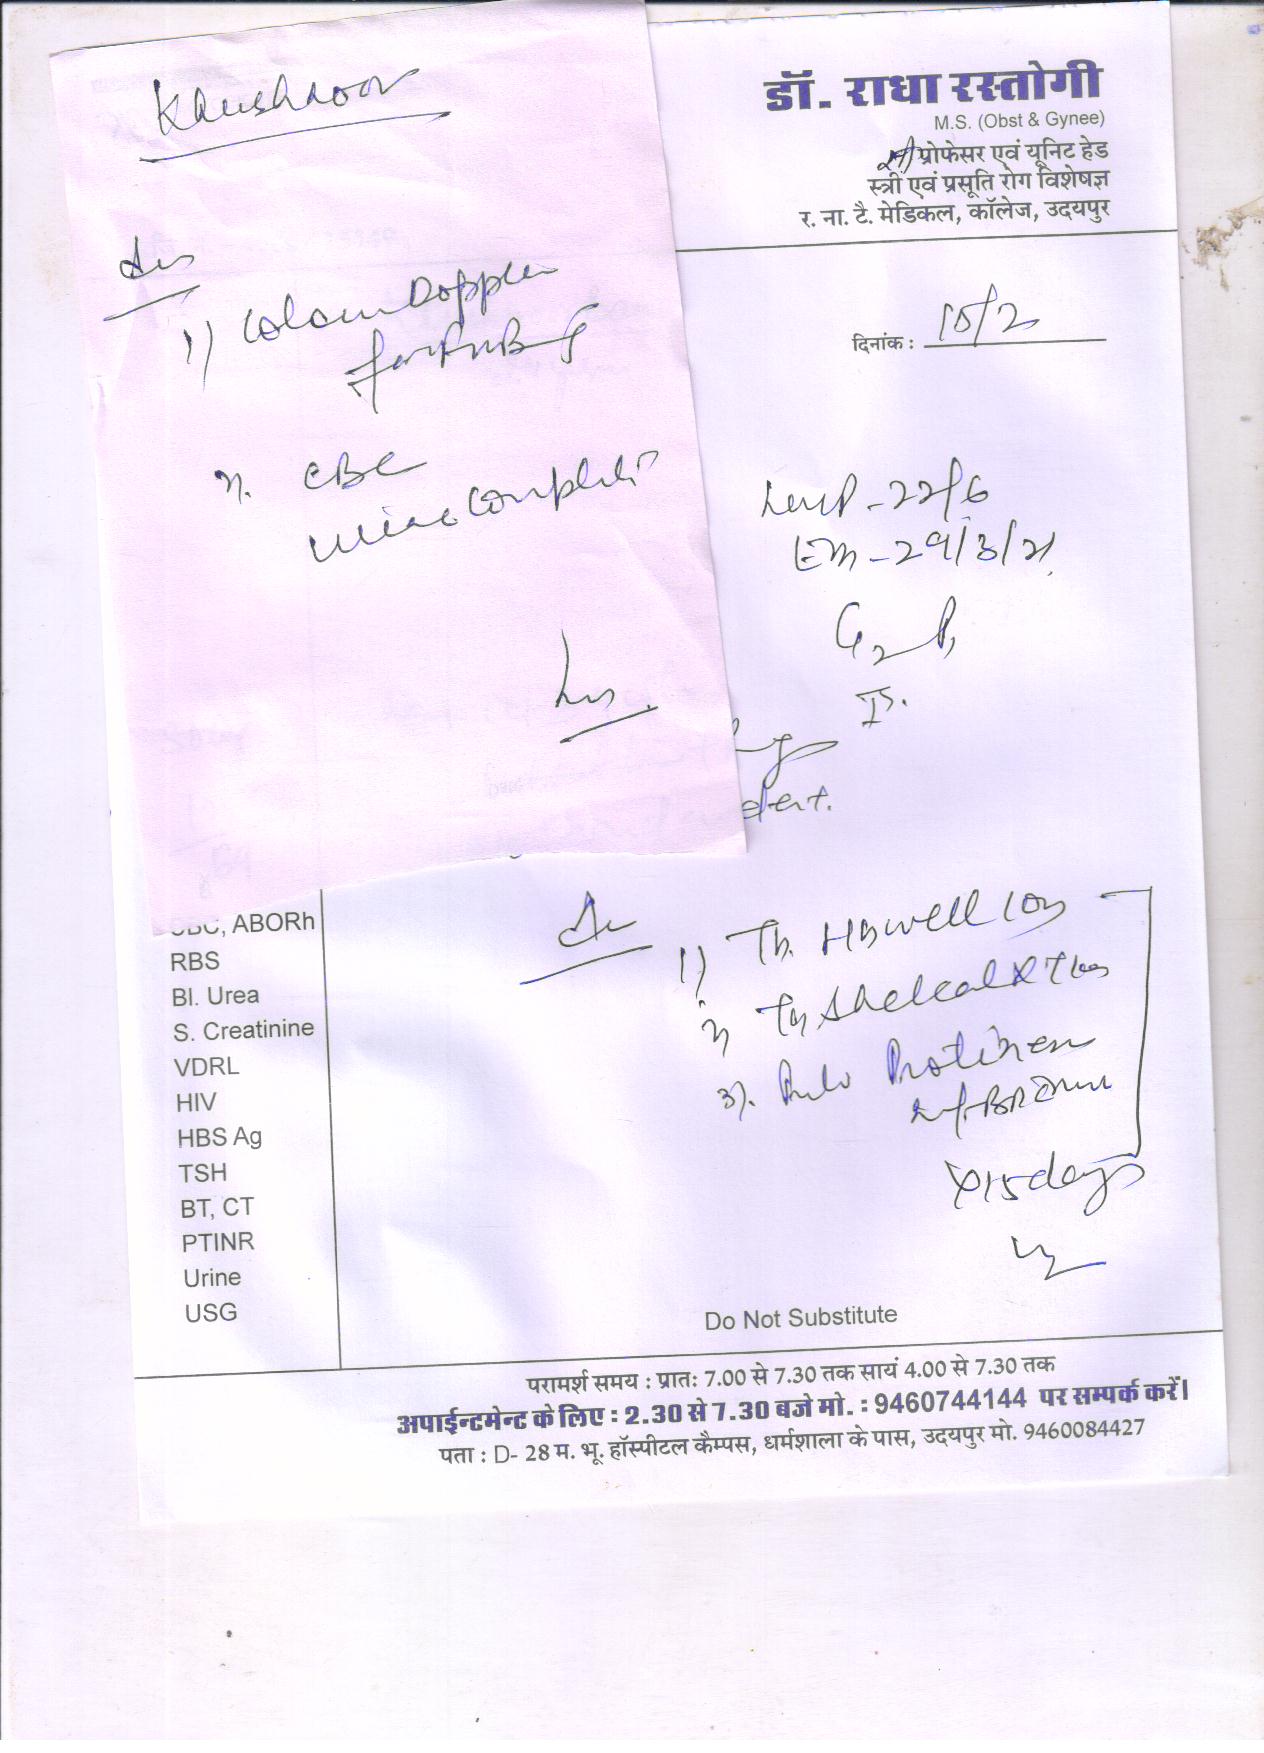 Khushnoor
Adv
1) Colour Doppler
for FWB
2. CBC
Urine Complete
डॉ. राधा रस्तोगी
M.S. (Obst & Gynee)
प्रोफेसर एवं यूनिट हेड
स्त्री एवं प्रसूति रोग विशेषज्ञ
र. ना. टै. मेडिकल, कॉलेज, उदयपुर
दिनांक : 15/2
LMP - 22/6
- 29/3/21
G2 P1
CBC, ABORh
RBS
Bl. Urea
S. Creatinine
VDRL
HIV
HBS Ag
TSH
BT, CT
PTINR
Urine
USG
Adv
1) Tb.
2) Tb Shelcal
3). Protinex
x 15 days
Do Not Substitute
परामर्श समय : प्रातः 7.00 से 7.30 तक सायं 4.00 से 7.30 तक
अपाईन्टमेन्ट के लिए : 2.30 से 7.30 बजे मो. : 9460744144 पर सम्पर्क करें।
पता : D- 28 म. भू. हॉस्पीटल कैम्पस, धर्मशाला के पास, उदयपुर मो. 9460084427